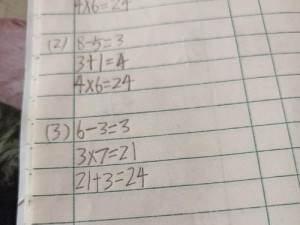 4×6=24
(2) 8-5=3
3+1=4
4×6=24
(3) 6-3=3
3×7=21
21+3=24